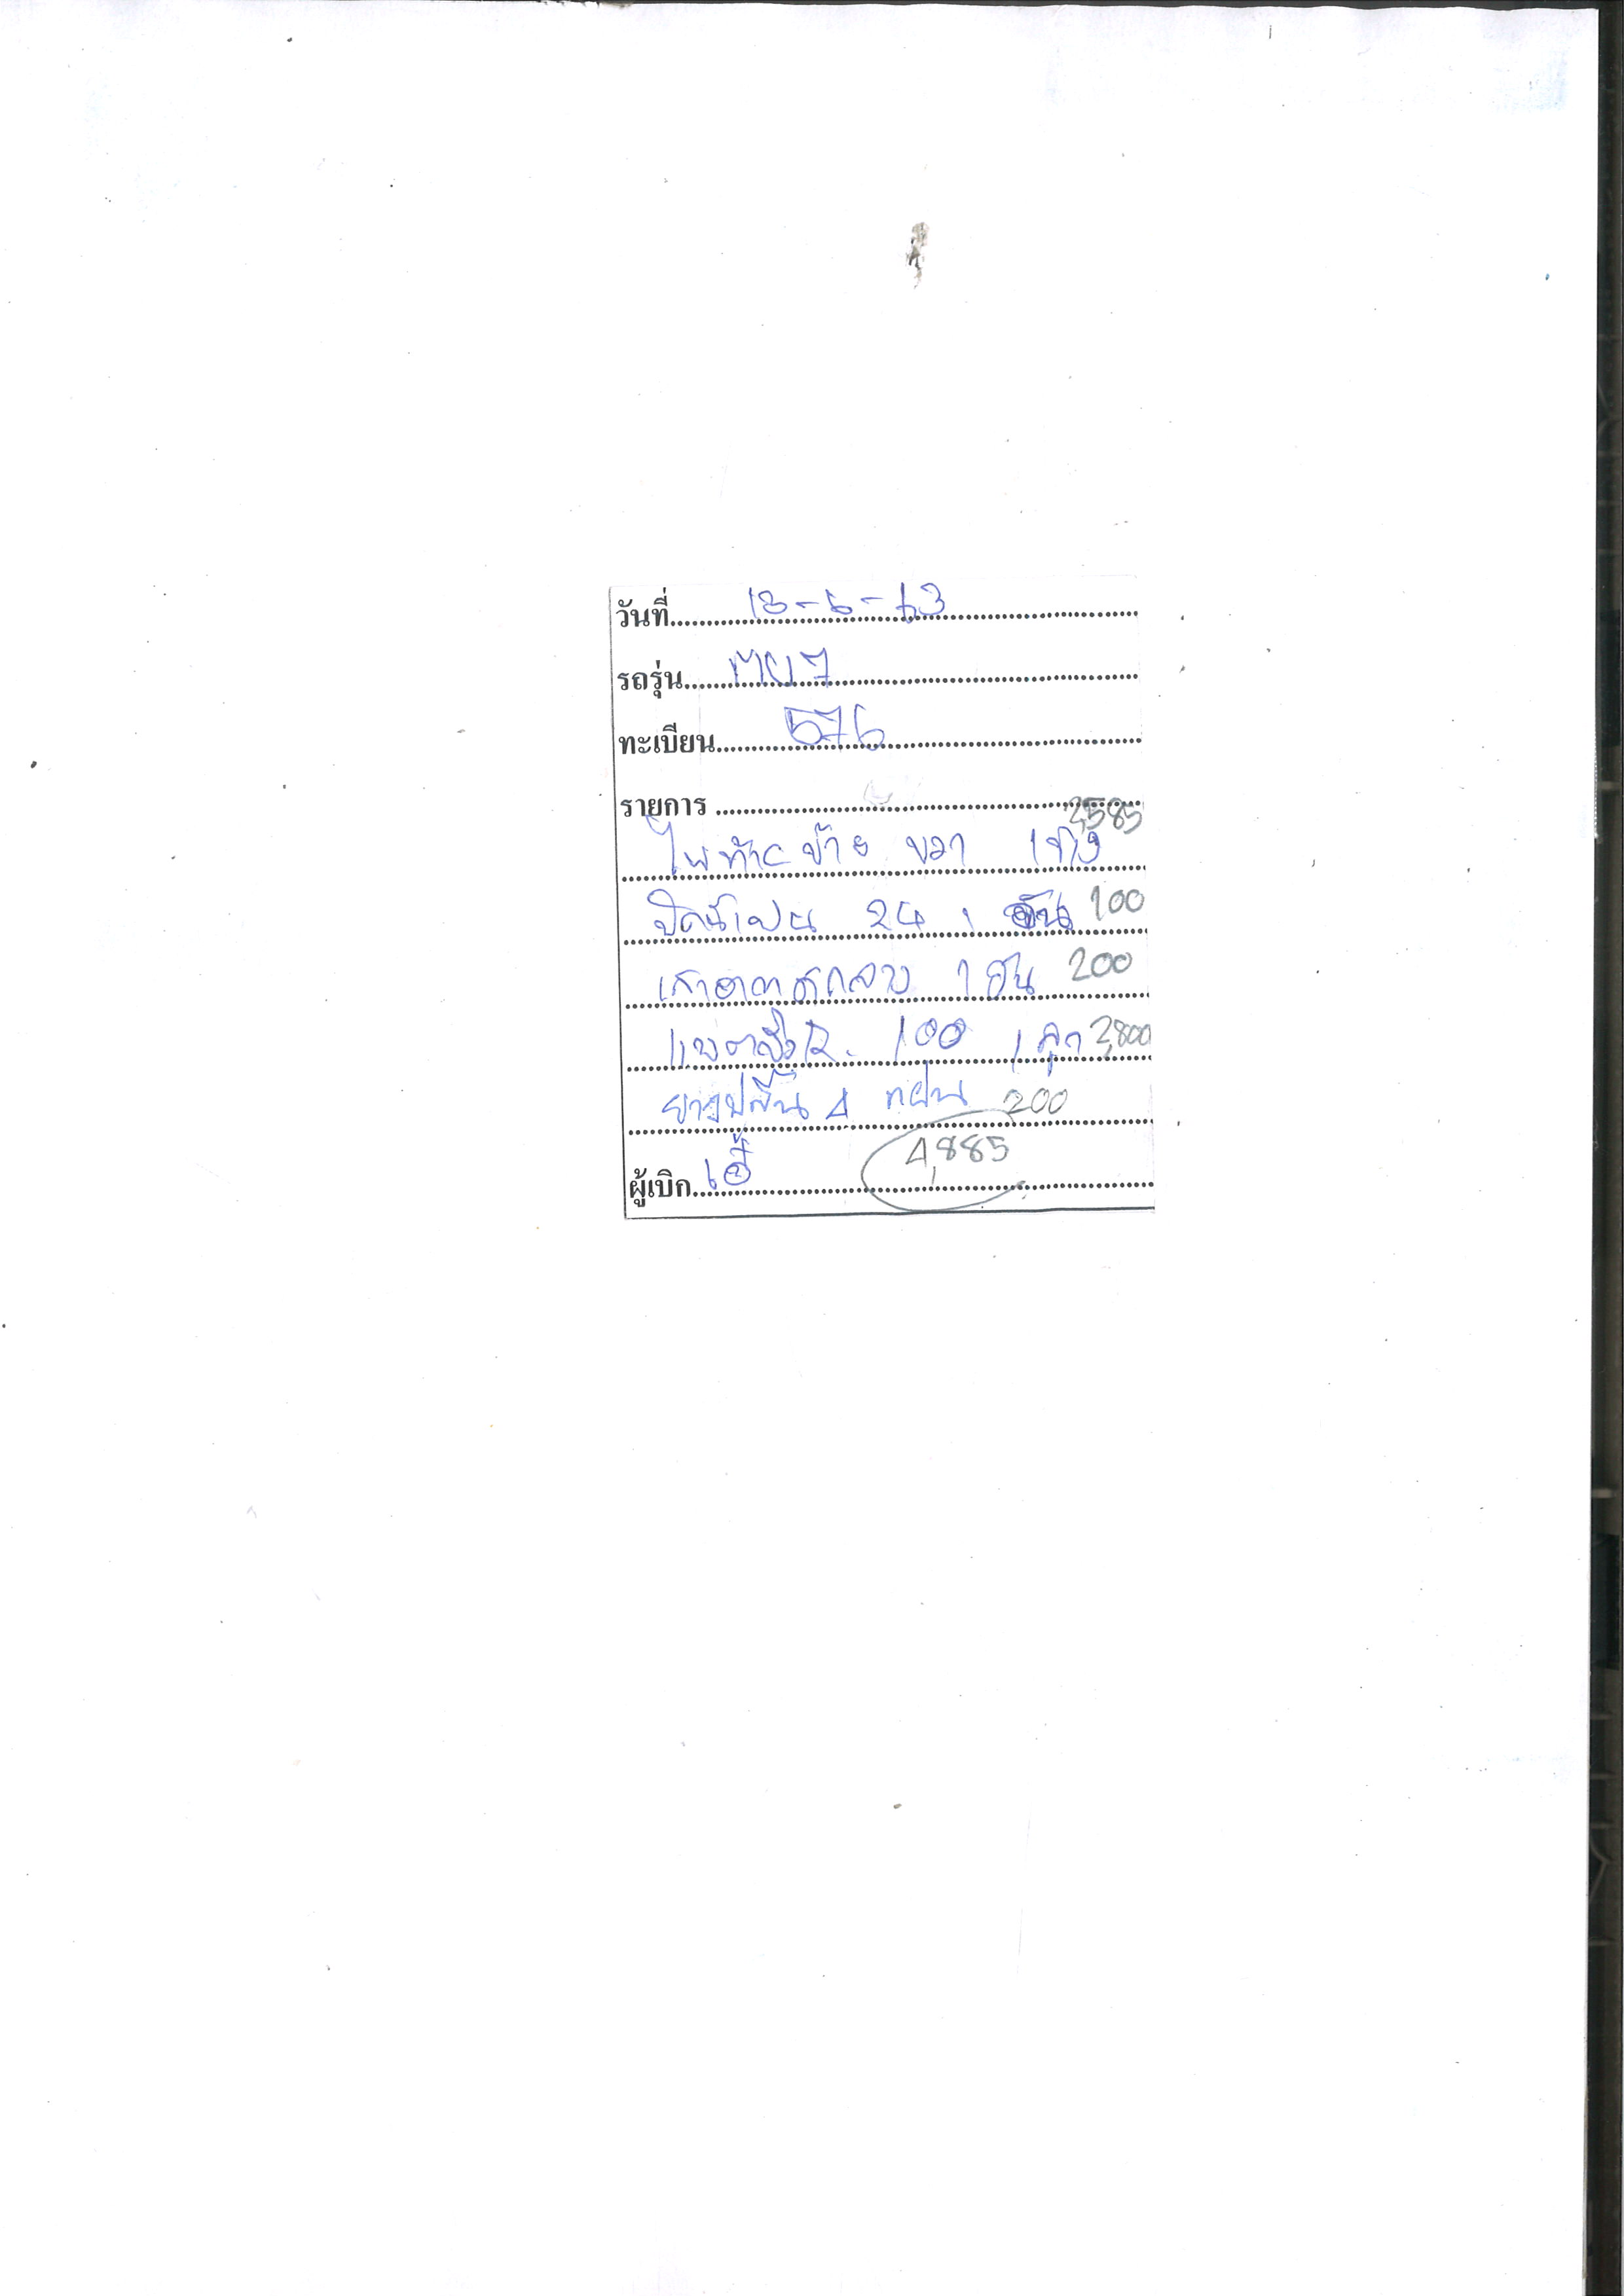 วันที่ 18-6-63
รถรุ่น
ทะเบียน 576
รายการ
ไฟท้าย ซ้าย ขวา 585
ปัดน้ำฝน 24 1 อัน 100
เสาอากาศกลาง 1 อัน 200
แบตเตอรี่ 100 1 ลูก 2,800
ยางปูพื้น 4 200
4,885
ผู้เบิก เอ๋